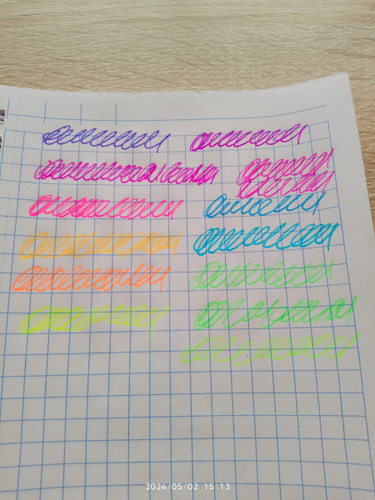 2024/05/02 15:13